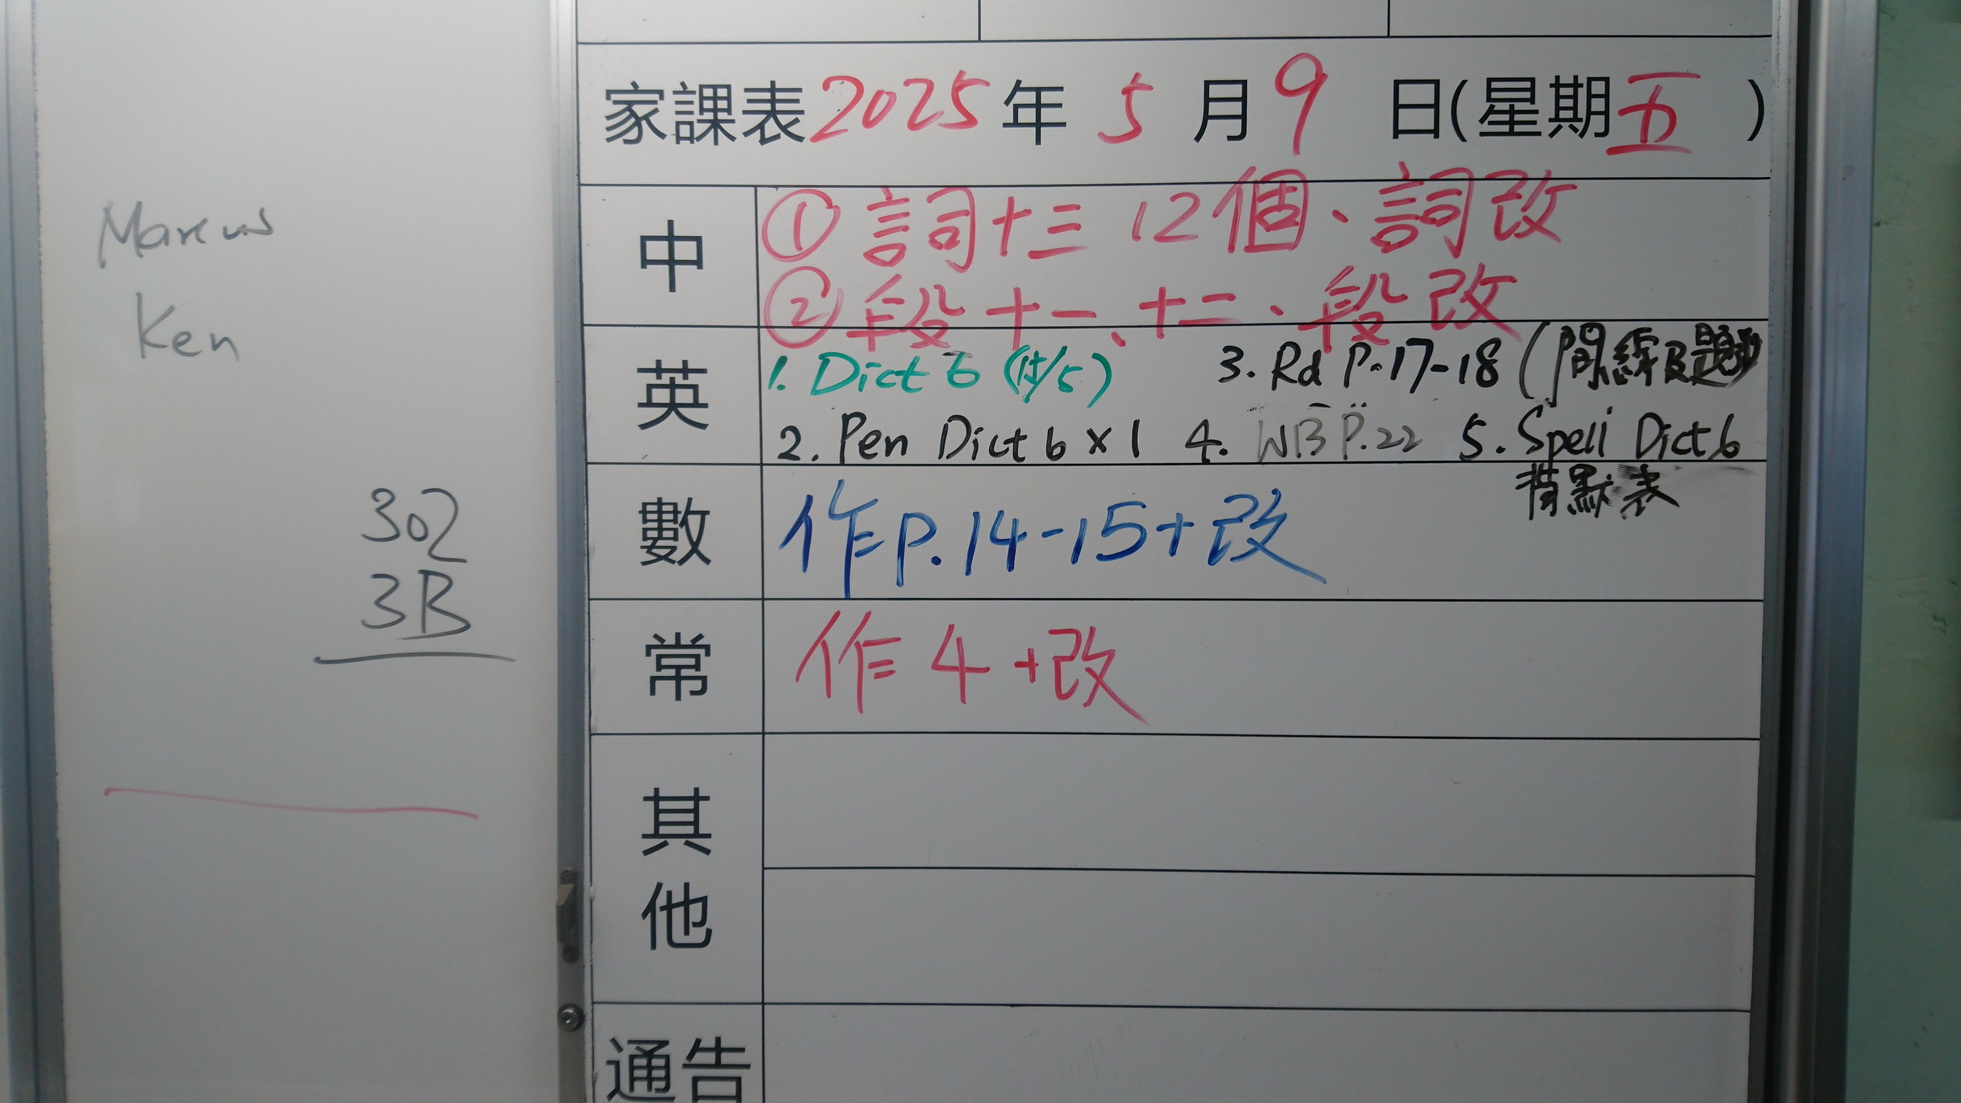 Marcus
Ken
302
3B
家課表 2025 年 5 月 9 日(星期五)
中
① 詞十三 12個、詞改
② 段十一、十二、段改
英
1. Dict 6 (15/5)
3. Rd P.17-18 (
2. Pen Dict 6 × 1 4. WB P.22 5. Spell Dict 6
默表
數
作P.14-15+改
常
作4+改
其他
通告